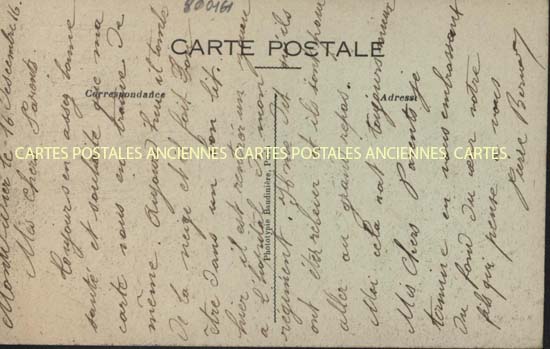 800161
CARTE POSTALE
Correspondance
Adresse
Phototypie Baudinière, P
CARTES POSTALES ANCIENNES CARTES POSTALES ANCIENNES CARTES POSTALES ANCIENNES
le 16 Decembre 16.
Mes Chers Parents
Toujours en assez bonne
santé et souhaite que ma
carte vous en trouve de
même. Aujourd'hui il tombe
de la neige et il fait
être dans un bon lit.
hier il est
a l'hopital de mon
régiment
ont été relever et ils sont pour
aller au grand repos.
Moi cela va toujours mieux
Mes Chers Parents je
termine en vous embrassant
du fond du cœur votre
fils qui pense a vous
Pierre